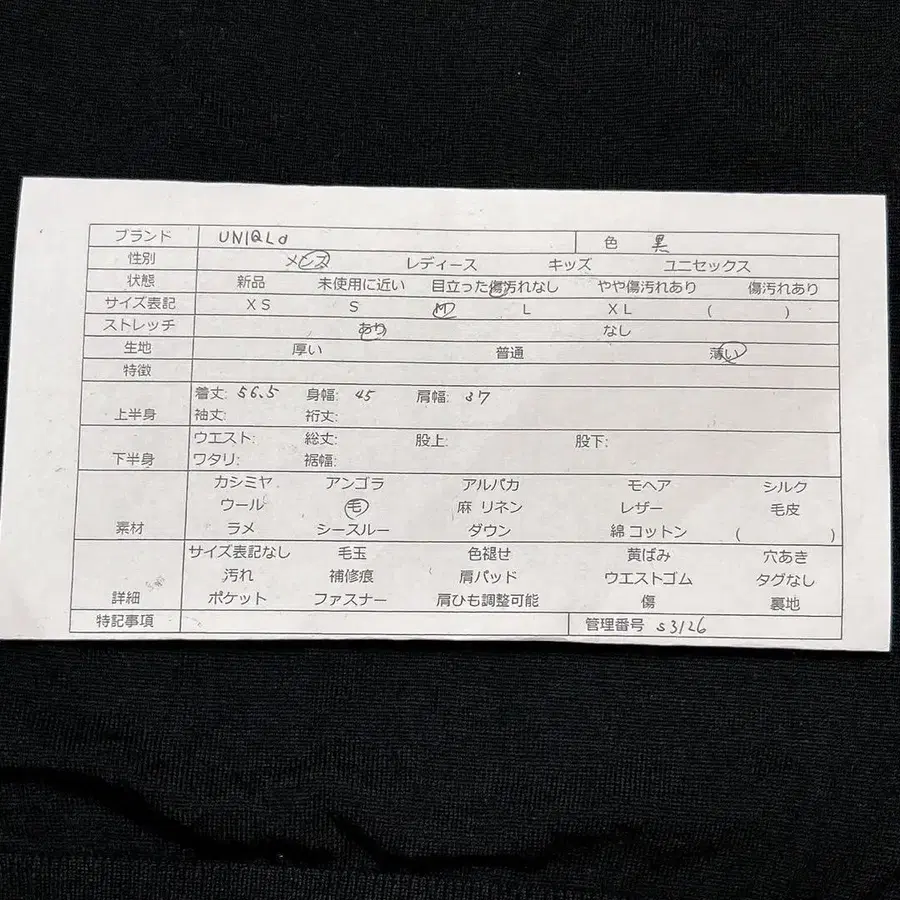 ブランド UNIQLO 色 黒
性別 メンズ レディース キッズ ユニセックス
状態 新品 未使用に近い 目立った傷汚れなし やや傷汚れあり 傷汚れあり
サイズ表記 XS S M L XL ( )
ストレッチ あり なし
生地 厚い 普通 薄い
特徴
着丈: 56.5 身幅: 45 肩幅: 37
上半身 袖丈: 裄丈:
ウエスト: 総丈: 股上: 股下:
下半身 ワタリ: 裾幅:
カシミヤ アンゴラ アルパカ モヘア シルク
ウール 毛 麻 リネン レザー 毛皮
素材 ラメ シースルー ダウン 綿 コットン ( )
サイズ表記なし 毛玉 色褪せ 黄ばみ 穴あき
汚れ 補修痕 肩パッド ウエストゴム タグなし
詳細 ポケット ファスナー 肩ひも調整可能 傷 裏地
特記事項 管理番号 S3126